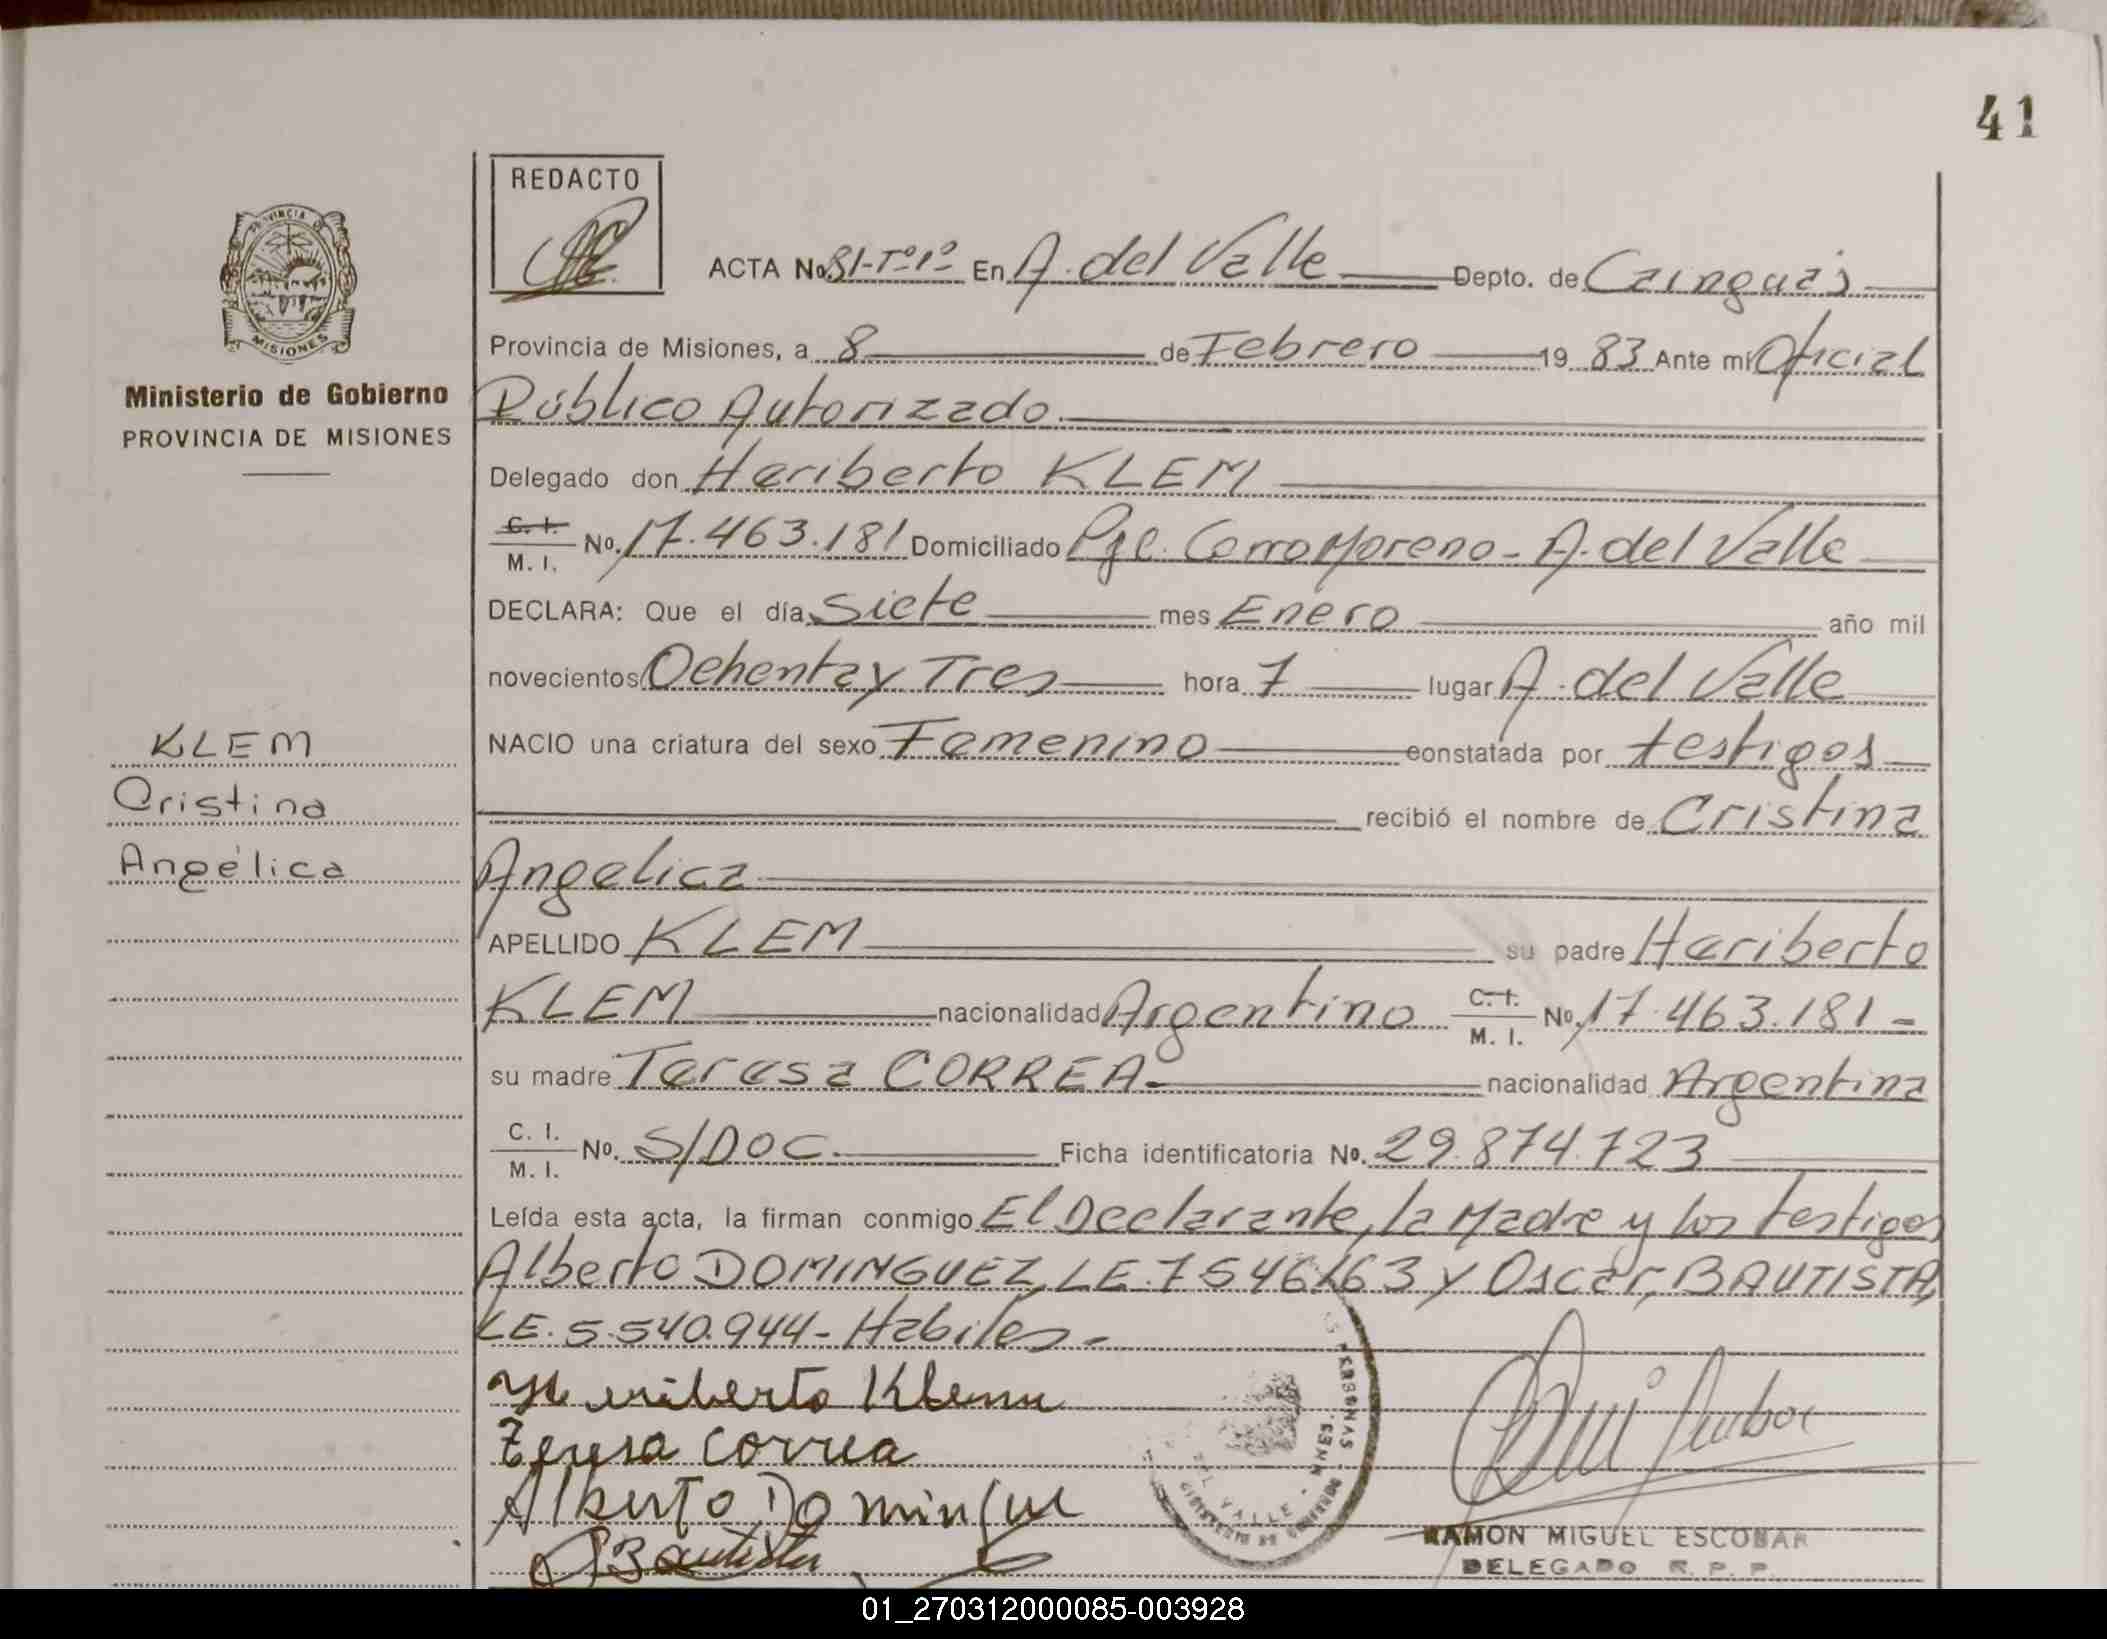 41
REDACTO
ACTA No. 81-Tº1º En A. del Valle Depto. de Cainguás
Provincia de Misiones, a 8 de Febrero 1983 Ante mí Oficial
Público Autorizado
Ministerio de Gobierno
PROVINCIA DE MISIONES
MISIONES
Delegado don Heriberto KLEM
C. I. M. I. No. 17.463.181 Domiciliado Pje. Cerro Moreno - A. del Valle
DECLARA: Que el día Siete mes Enero año mil
novecientos Ochenta y Tres hora 7 lugar A. del Valle
NACIO una criatura del sexo Femenino constatada por testigos
recibió el nombre de Cristina
Angelica
KLEM
Cristina
Angélica
APELLIDO KLEM su padre Heriberto
KLEM nacionalidad Argentino C. I. M. I. No. 17.463.181-
su madre Teresa CORREA- nacionalidad Argentina
C. I. M. I. No. S/DOC. Ficha identificatoria No. 29.874.723
Leída esta acta, la firman conmigo El Declarante, la Madre y los testigos
Alberto DOMINGUEZ, LE. 7546163 y Oscar, BAUTISTA,
LE. 5.540.944- Habiles-
Heriberto Klem
Teresa Correa
Alberto Domingue
Bautista
RAMON MIGUEL ESCOBAR
DELEGADO R. P. P.
01_270312000085-003928